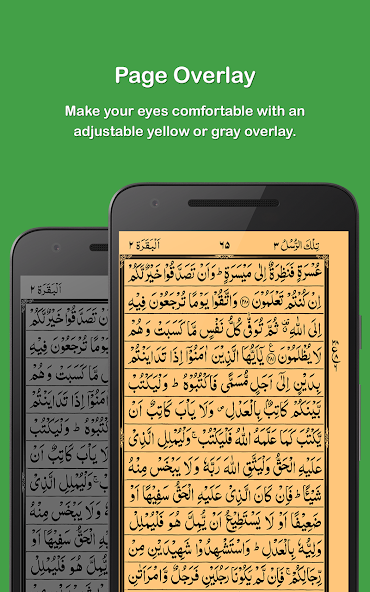 Page Overlay
Make your eyes comfortable with an
adjustable yellow or gray overlay.
تِلْكَ الرُّسُلُ ٣ ٦٥ اَلْبَقَرَة ٢
عُسْرَةٍ فَنَظِرَةٌ اِلٰى مَيْسَرَةٍ ؕ وَاَنْ تَصَدَّقُوْا خَيْرٌ لَّكُمْ
اِنْ كُنْتُمْ تَعْلَمُوْنَ ﴿٢٨٠﴾ وَاتَّقُوْا يَوْمًا تُرْجَعُوْنَ فِيْهِ
اِلَى اللّٰهِ ۗ ثُمَّ تُوَفّٰى كُلُّ نَفْسٍ مَّا كَسَبَتْ وَهُمْ
لَا يُظْلَمُوْنَ ﴿٢٨١﴾ يٰۤاَيُّهَا الَّذِيْنَ اٰمَنُوْۤا اِذَا تَدَايَنْتُمْ
بِدَيْنٍ اِلٰۤى اَجَلٍ مُّسَمًّى فَاكْتُبُوْهُ ؕ وَلْيَكْتُبْ
بَّيْنَكُمْ كَاتِبٌۢ بِالْعَدْلِ ۪ وَلَا يَاْبَ كَاتِبٌ اَنْ
يَّكْتُبَ كَمَا عَلَّمَهُ اللّٰهُ فَلْيَكْتُبْ ۚ وَلْيُمْلِلِ الَّذِيْ
عَلَيْهِ الْحَقُّ وَلْيَتَّقِ اللّٰهَ رَبَّهٗ وَلَا يَبْخَسْ مِنْهُ
شَيْـًٔا ؕ فَاِنْ كَانَ الَّذِيْ عَلَيْهِ الْحَقُّ سَفِيْهًا اَوْ
ضَعِيْفًا اَوْ لَا يَسْتَطِيْعُ اَنْ يُّمِلَّ هُوَ فَلْيُمْلِلْ
وَلِيُّهٗ بِالْعَدْلِ ؕ وَاسْتَشْهِدُوْا شَهِيْدَيْنِ مِنْ
رِّجَالِكُمْ ۚ فَاِنْ لَّمْ يَكُوْنَا رَجُلَيْنِ فَرَجُلٌ وَّامْرَاَتٰنِ
اَلْبَقَرَة ٢
تَصَدَّقُوْا خَيْرٌ لَّكُمْ
تُرْجَعُوْنَ فِيْهِ
مَّا كَسَبَتْ وَهُمْ
اِذَا تَدَايَنْتُمْ
وَلْيَكْتُبْ
كَاتِبٌ اَنْ
وَلْيُمْلِلِ الَّذِيْ
وَلَا يَبْخَسْ مِنْهُ
الْحَقُّ سَفِيْهًا اَوْ
هُوَ فَلْيُمْلِلْ
شَهِيْدَيْنِ مِنْ